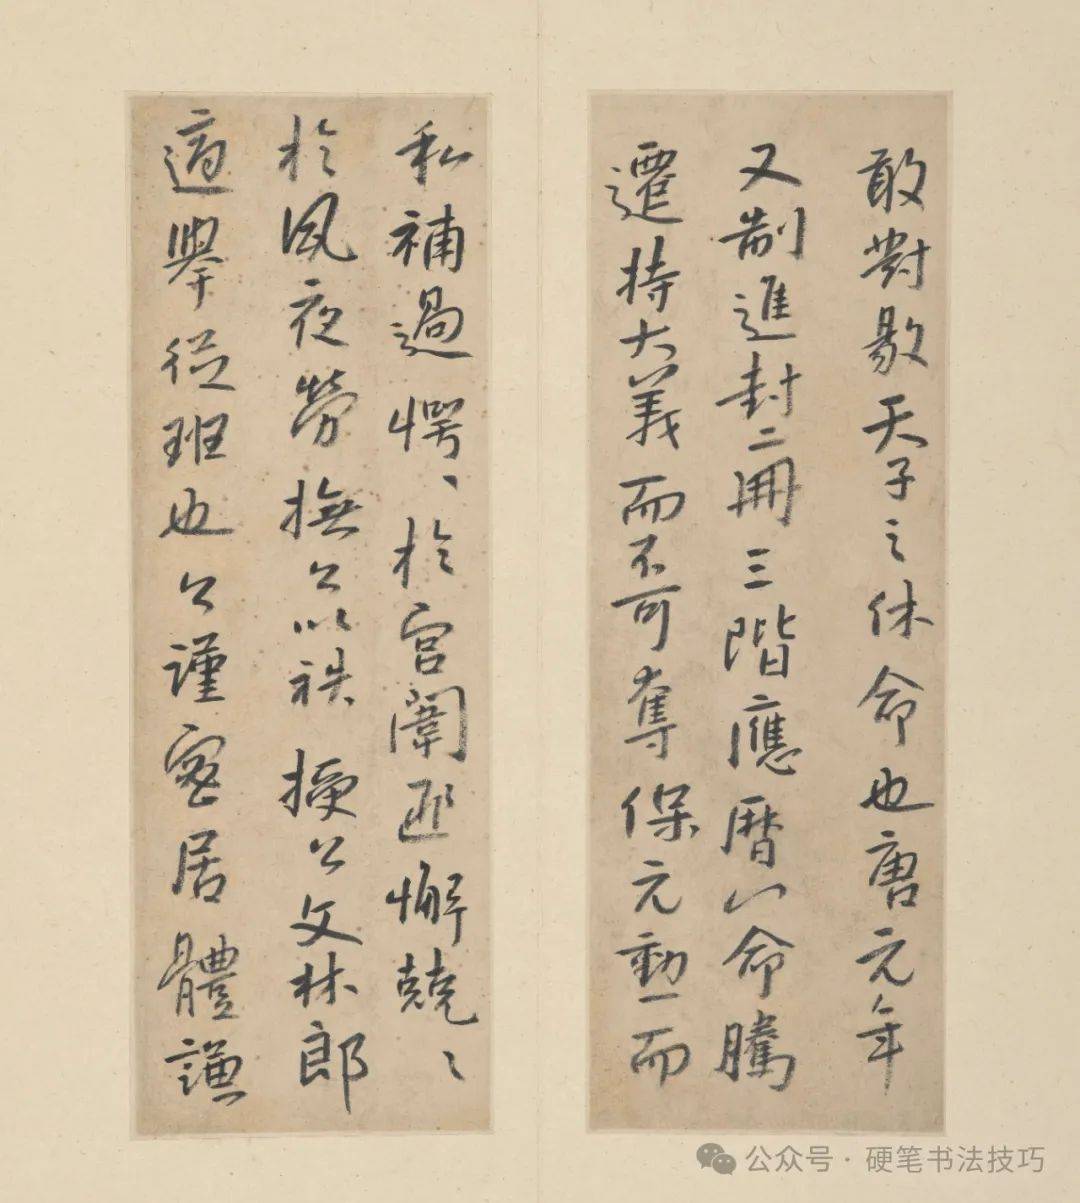 敢對敭天子之休命也唐元年
又制進封二冊三階應曆八命騰
遷持大義而不可奪保元勳一而
私補過愕、於宮闈匪懈兢〻
於夙夜勞撫公以祑授公文林郎
適舉從班也公謹密居體謙
公众号·硬笔书法技巧